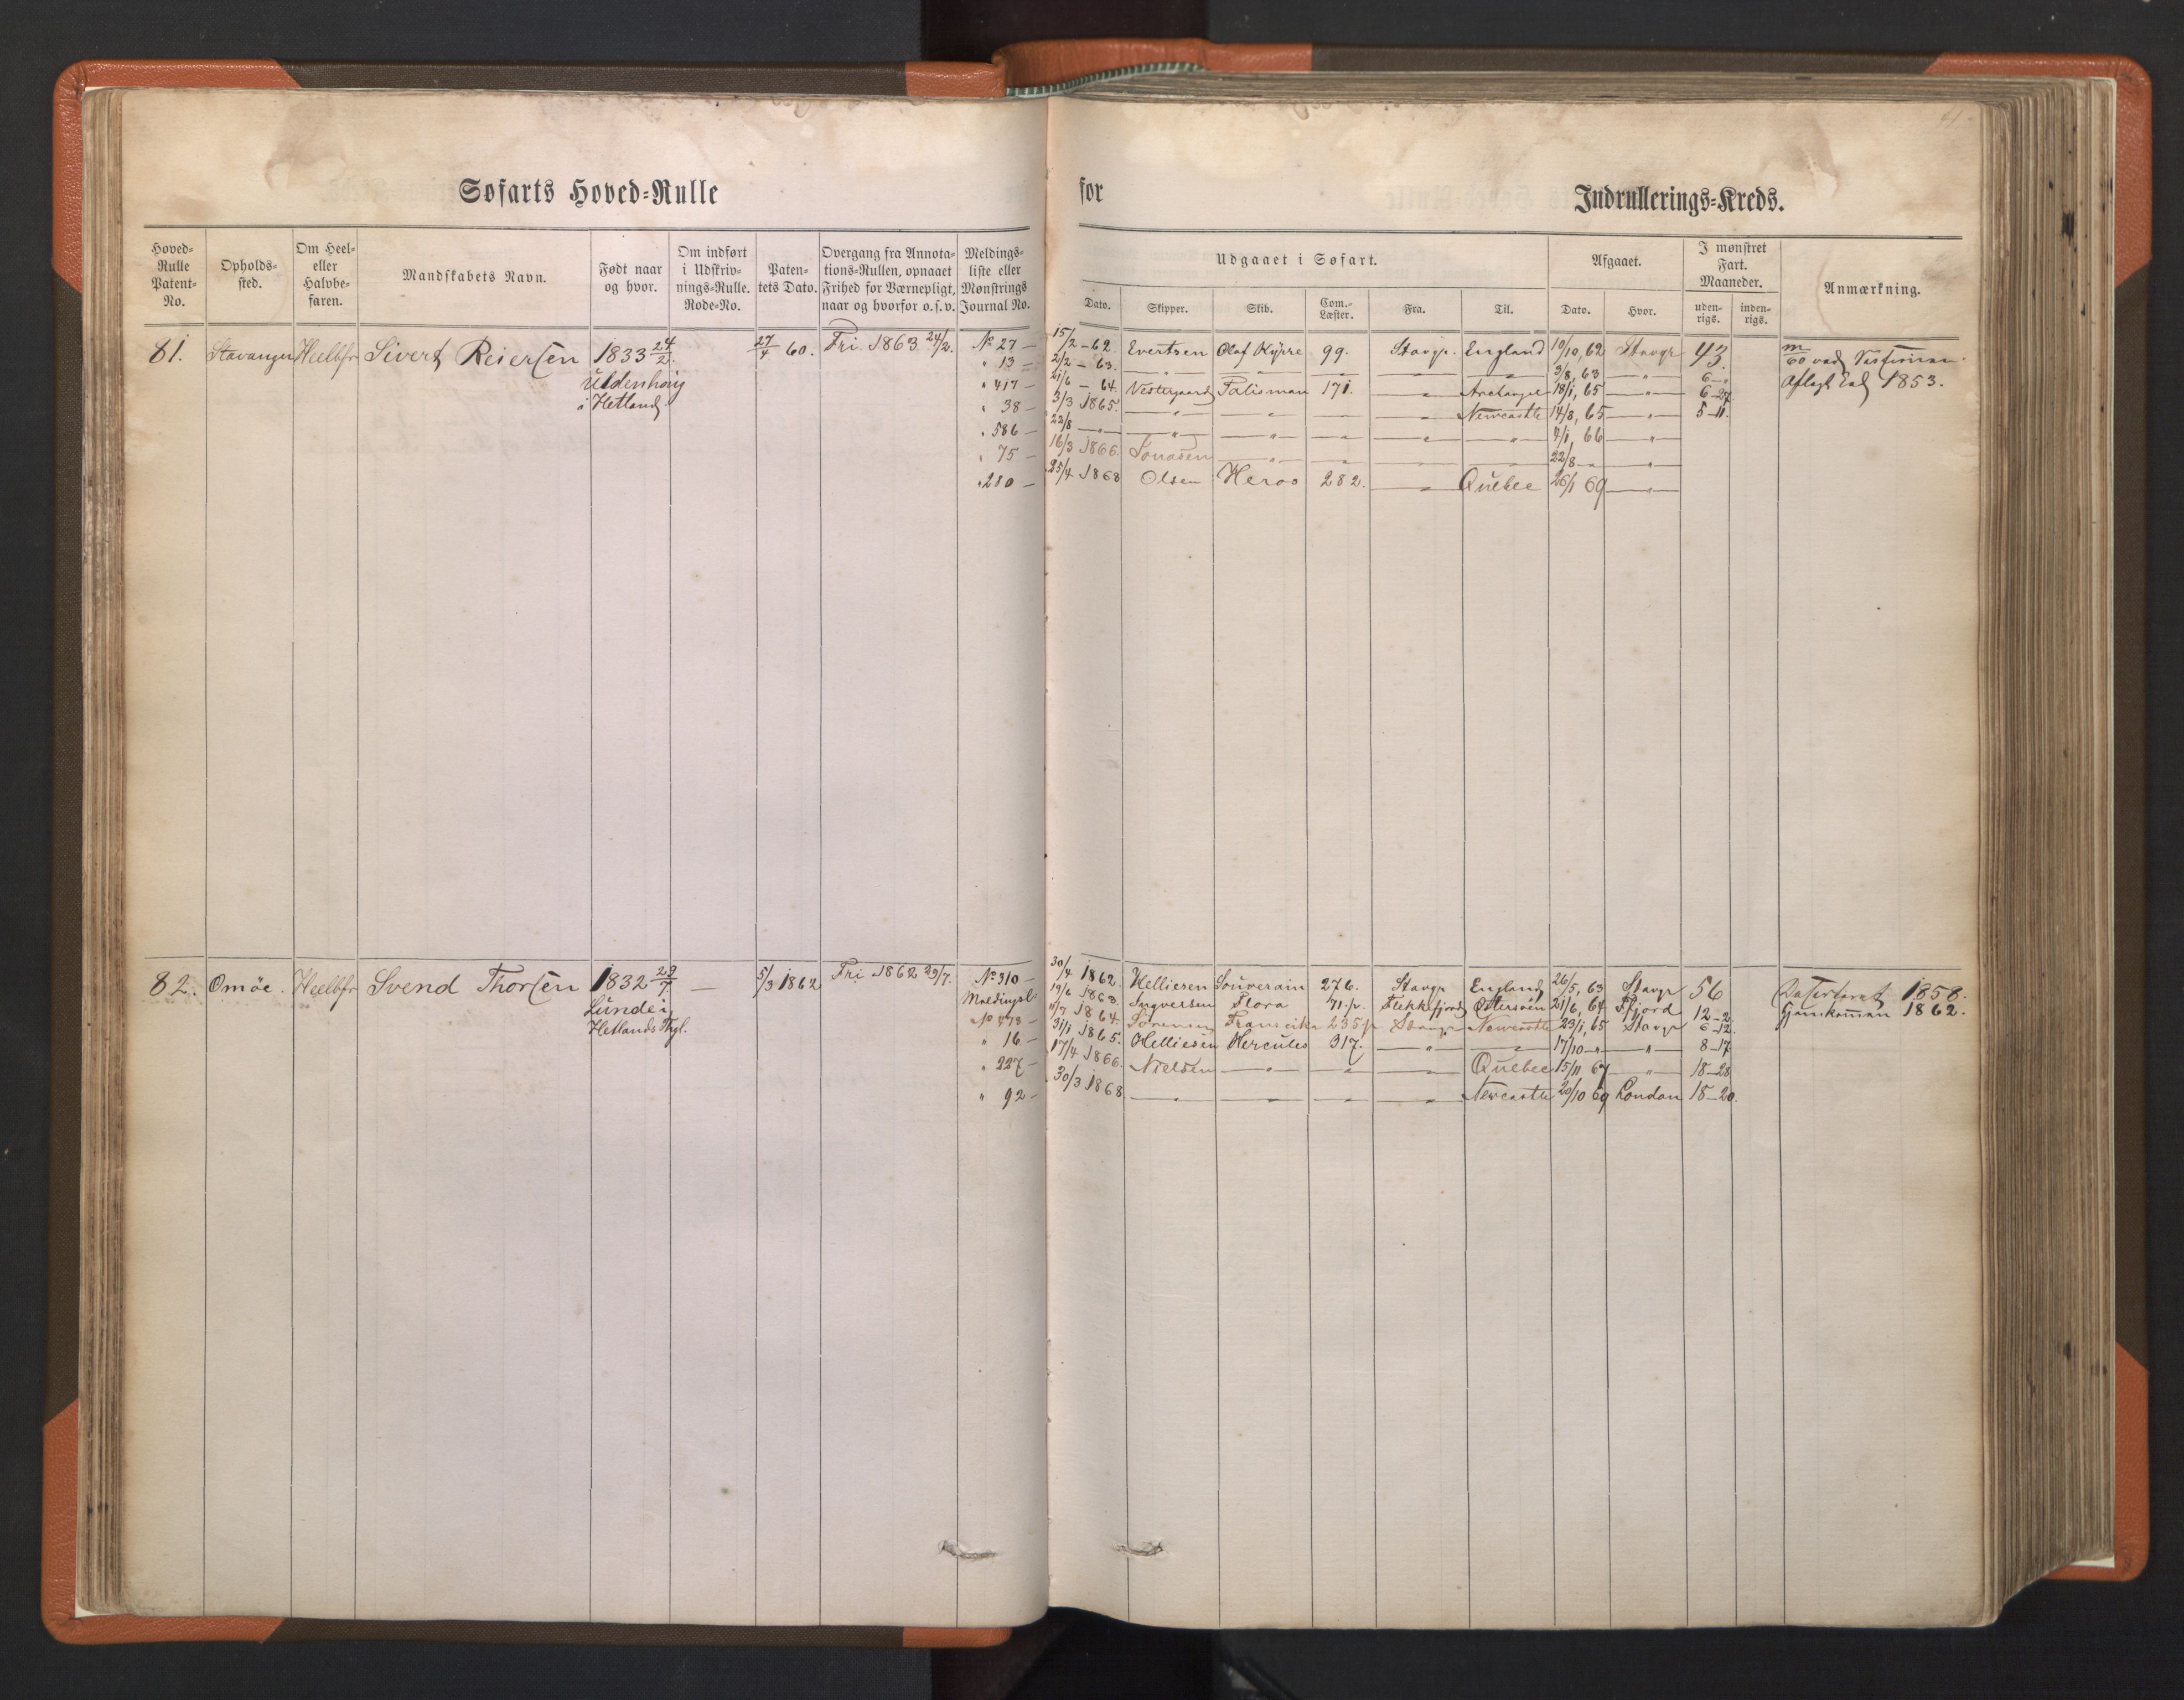 41
Søfarts Hoved-Rulle for Indrullerings-Kreds.
Hoved-Rulle Patent-No. | Opholds-sted. | Om Heel- eller Halvbe-faren. | Mandskabets Navn. | Født naar og hvor. | Om indført i Udskriv-nings-Rulle. Rode-No. | Paten-tets Dato. | Overgang fra Annota-tions-Rullen, opnaaet Frihed for Værnepligt, naar og hvorfor o.s.v. | Meldings-liste eller Mønstrings Journal No. | Udgaaet i Søfart. | Afgaaet. | I mønstret Fart. Maaneder. | Anmærkning.
Dato. | Skipper. | Skib. | Com.-Læster. | Fra. | Til. | Dato. | Hvor. | uden-rigs. | inden-rigs.
81. Stavanger Heelbfr Sivert Reiersen 1833 24/2. 27/4 60. Fri 1863 24/2. No 27 — 15/2 - 62 Evertsen Olaf Kyrre 99. Stavgr. England 10/10, 62 Stavgr 43
Uldenhoug " 13 — 2/2 - 63. — " — — " — — " — — " — 3/8, 63 — " — 6 - "
i Hetland " 417 — 21/6 - 64. Vestergaard Talisman 171. — " — Archangel 18/1, 65 — " — 6-27 Aflagt Eed 1853.
" 38 — 3/3 1865. — " — — " — — " — Newcastle 14/8, 65 — " — 5-11.
" 586 — 22/8 — " — — " — — " — — " — — " — — " — 7/1, 66 — " —
" 75 — 16/3 1866. Jonassen — " — — " — — " — — " — 22/8 — " — — " —
" 280 — 25/4 1868 Olsen Heros 282. — " — Quebec 26/1 69 — " —
82. Omøe. Heelbfr Svend Thorsen 1832 29/7. — 5/3 1862 Fri 1862 29/7. No 310 — 30/4 1862. Helliesen Souverain 276. Stavgr England 26/5, 63 Stavgr 56 1858.
Lunde i Meldingsl: 19/6 1863. Ingversen Flora 71 p. Flekkefjord Østersøen 21/6, 64 Ffjord 12-2 hjemkommen 1862.
Hetlands Thgl. No 478 — /7 1864. Sørensen Franscika 235 p Stavgr Newcastle 23/1, 65 Stavgr 6-12.
" 16 — 31/1 1865. Helliesen Hercules 317. — " — — " — 17/10 — " — — " — 8-17
" 227 — 17/4 1866. Nielsen — " — — " — — " — Quebec 15/11 67 — " — 18-28
" 92 — 30/3 1868 — " — — " — — " — — " — Newcastle 20/10 69 London 18-20.